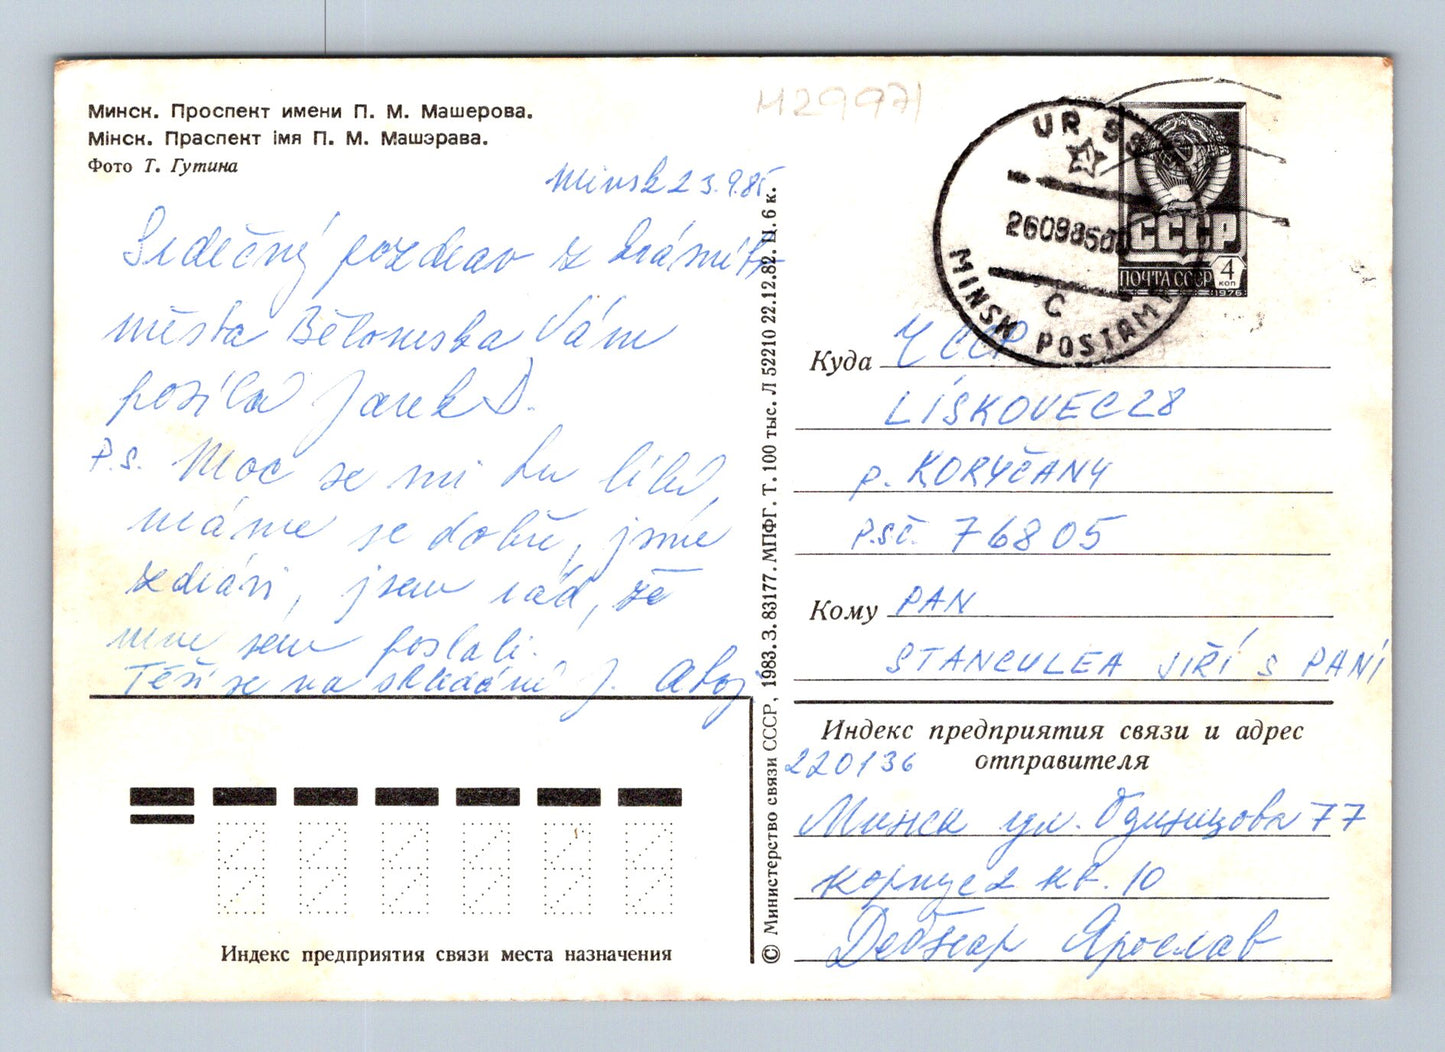 Минск. Проспект имени П. М. Машерова.
Мінск. Праспект імя П. М. Машэрава.
Фото Т. Гутина
Minsk 23.9.85
Srdečný pozdrav z krásného
města Běloruska Vám
posílá Jarek D.
P.S. Moc se mi tu líbí,
máme se dobře, jsme
zdrávi, jsem rád, že
mne sem poslali.
Těší se na shledání J. Ahoj
Индекс предприятия связи места назначения
© Министерство связи СССР, 1983. З. 83177. МПФГ. Т. 100 тыс. Л 52210 22.12.82. Ц. 6 к.
М29971
URSS
260985
C
MINSK POSTAMT
СССР
ПОЧТА СССР 4 КОП
1976
Куда ЧССР
LÍSKOVEC 28
p. KORYČANY
PSČ. 76805
Кому PAN
STANCULEA JIŘÍ S PANÍ
Индекс предприятия связи и адрес
отправителя
220136
Минск ул. Одинцова 77
корпус 2 кв. 10
Дебнар Ярослав